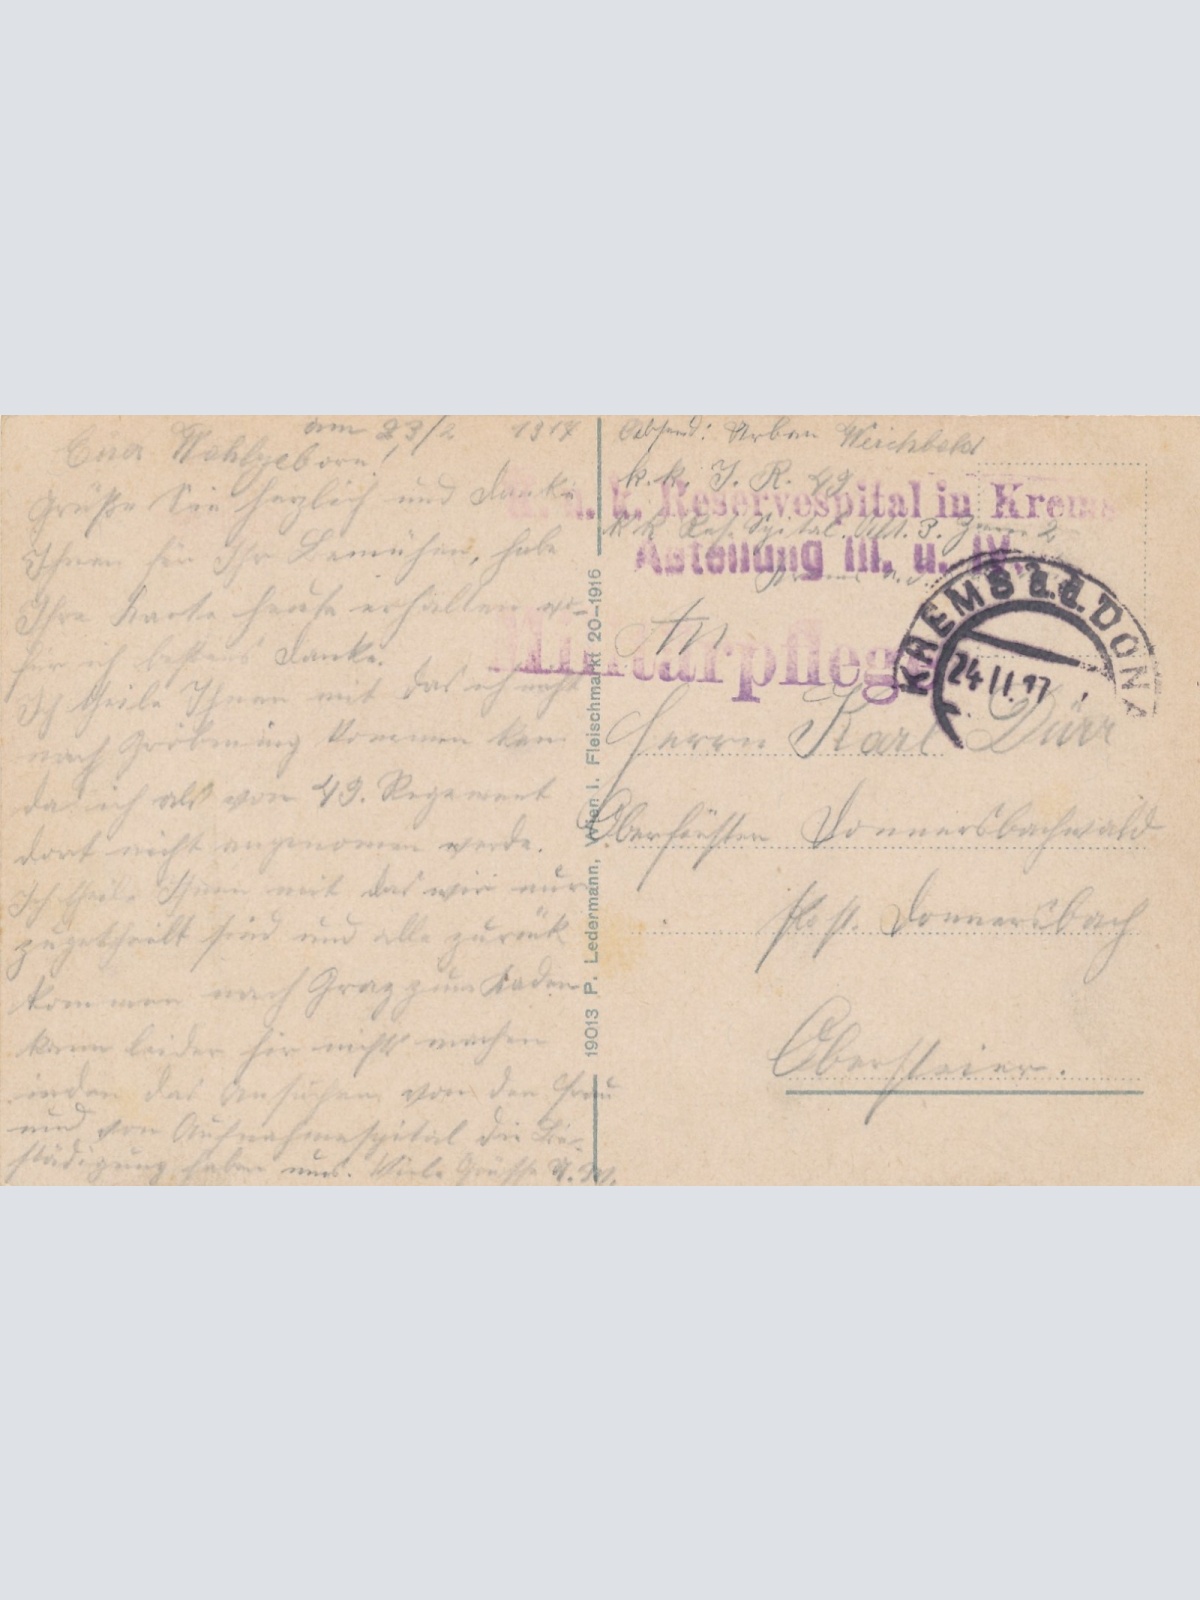 am 23/2 1917
Euer Wohlgeboren!
Grüße Sie herzlich und danke
Ihnen für Ihr Bemühen, habe
Ihre Karte heute erhalten wo-
für ich bestens danke.
Ich theile Ihnen mit das ich nicht
nach Gröbming kommen kan
da ich als vom 49. Regement
dort nicht angenomen werde.
Ich theile Ihnen mit das wir nur
zugetheilt sind und alle zurük
kom men nach Graz zum Kader
kann leider hir nichts machen
inden das Ansuchen von der Frau
und vom Aufnahmsspital die Be-
städigung haben mus. Viele Grüsse U. W.
19013 P. Ledermann, Wien I. Fleischmarkt 20–1916
Absend: Urban Weichbold
k. k. I. R. 49
K. u. k. Reservespital in Krems
k k Res. Spital. Abt. 3. Zimm 2
Abteilung III. u. IV.
Krems a. d.
Militärpflege
KREMS a.d. DONA
24 II. 17
An
Herrn Karl Dürr
Oberförster Donnersbachwald
Post. Donnersbach
Obersteier.